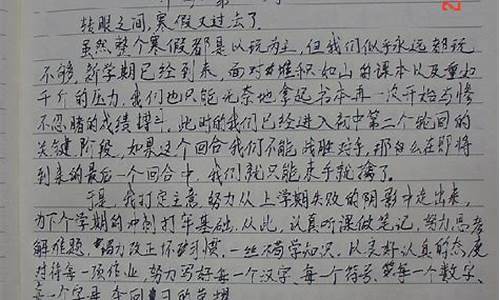 转眼之间，寒假又过去了。
虽然整个寒假都是以玩为主，但我们似乎永远都玩
不够，新学期已经到来，面对堆积如山的课本以及重如
千斤的压力，我们也只能无奈地拿起书本再一次开始与惨
不忍睹的成绩搏斗，此时的我们已经进入初中第二个轮回的
关键阶段，如果这个回合我们不能战胜对手，那么在即将
到来的最后一个回合中，我们就只能束手就擒了。
于是，我打定主意努力从上学期失败的阴影中走出来，
为下个学期的冲刺打牢基础，从此，认真听课做笔记，努力思考
解难题，努力改正坏习惯，一丝不苟学知识，以良好认真的态度
对待每一项作业，努力写好每一个汉字、每一个符号、每一个数字、
每一个字母